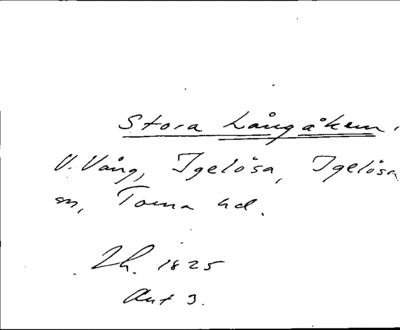 Stora Långåkern.
V. Vång, Igelösa, Igelösa
sn, Torna hd.
Lh. 1825
Akt 3.